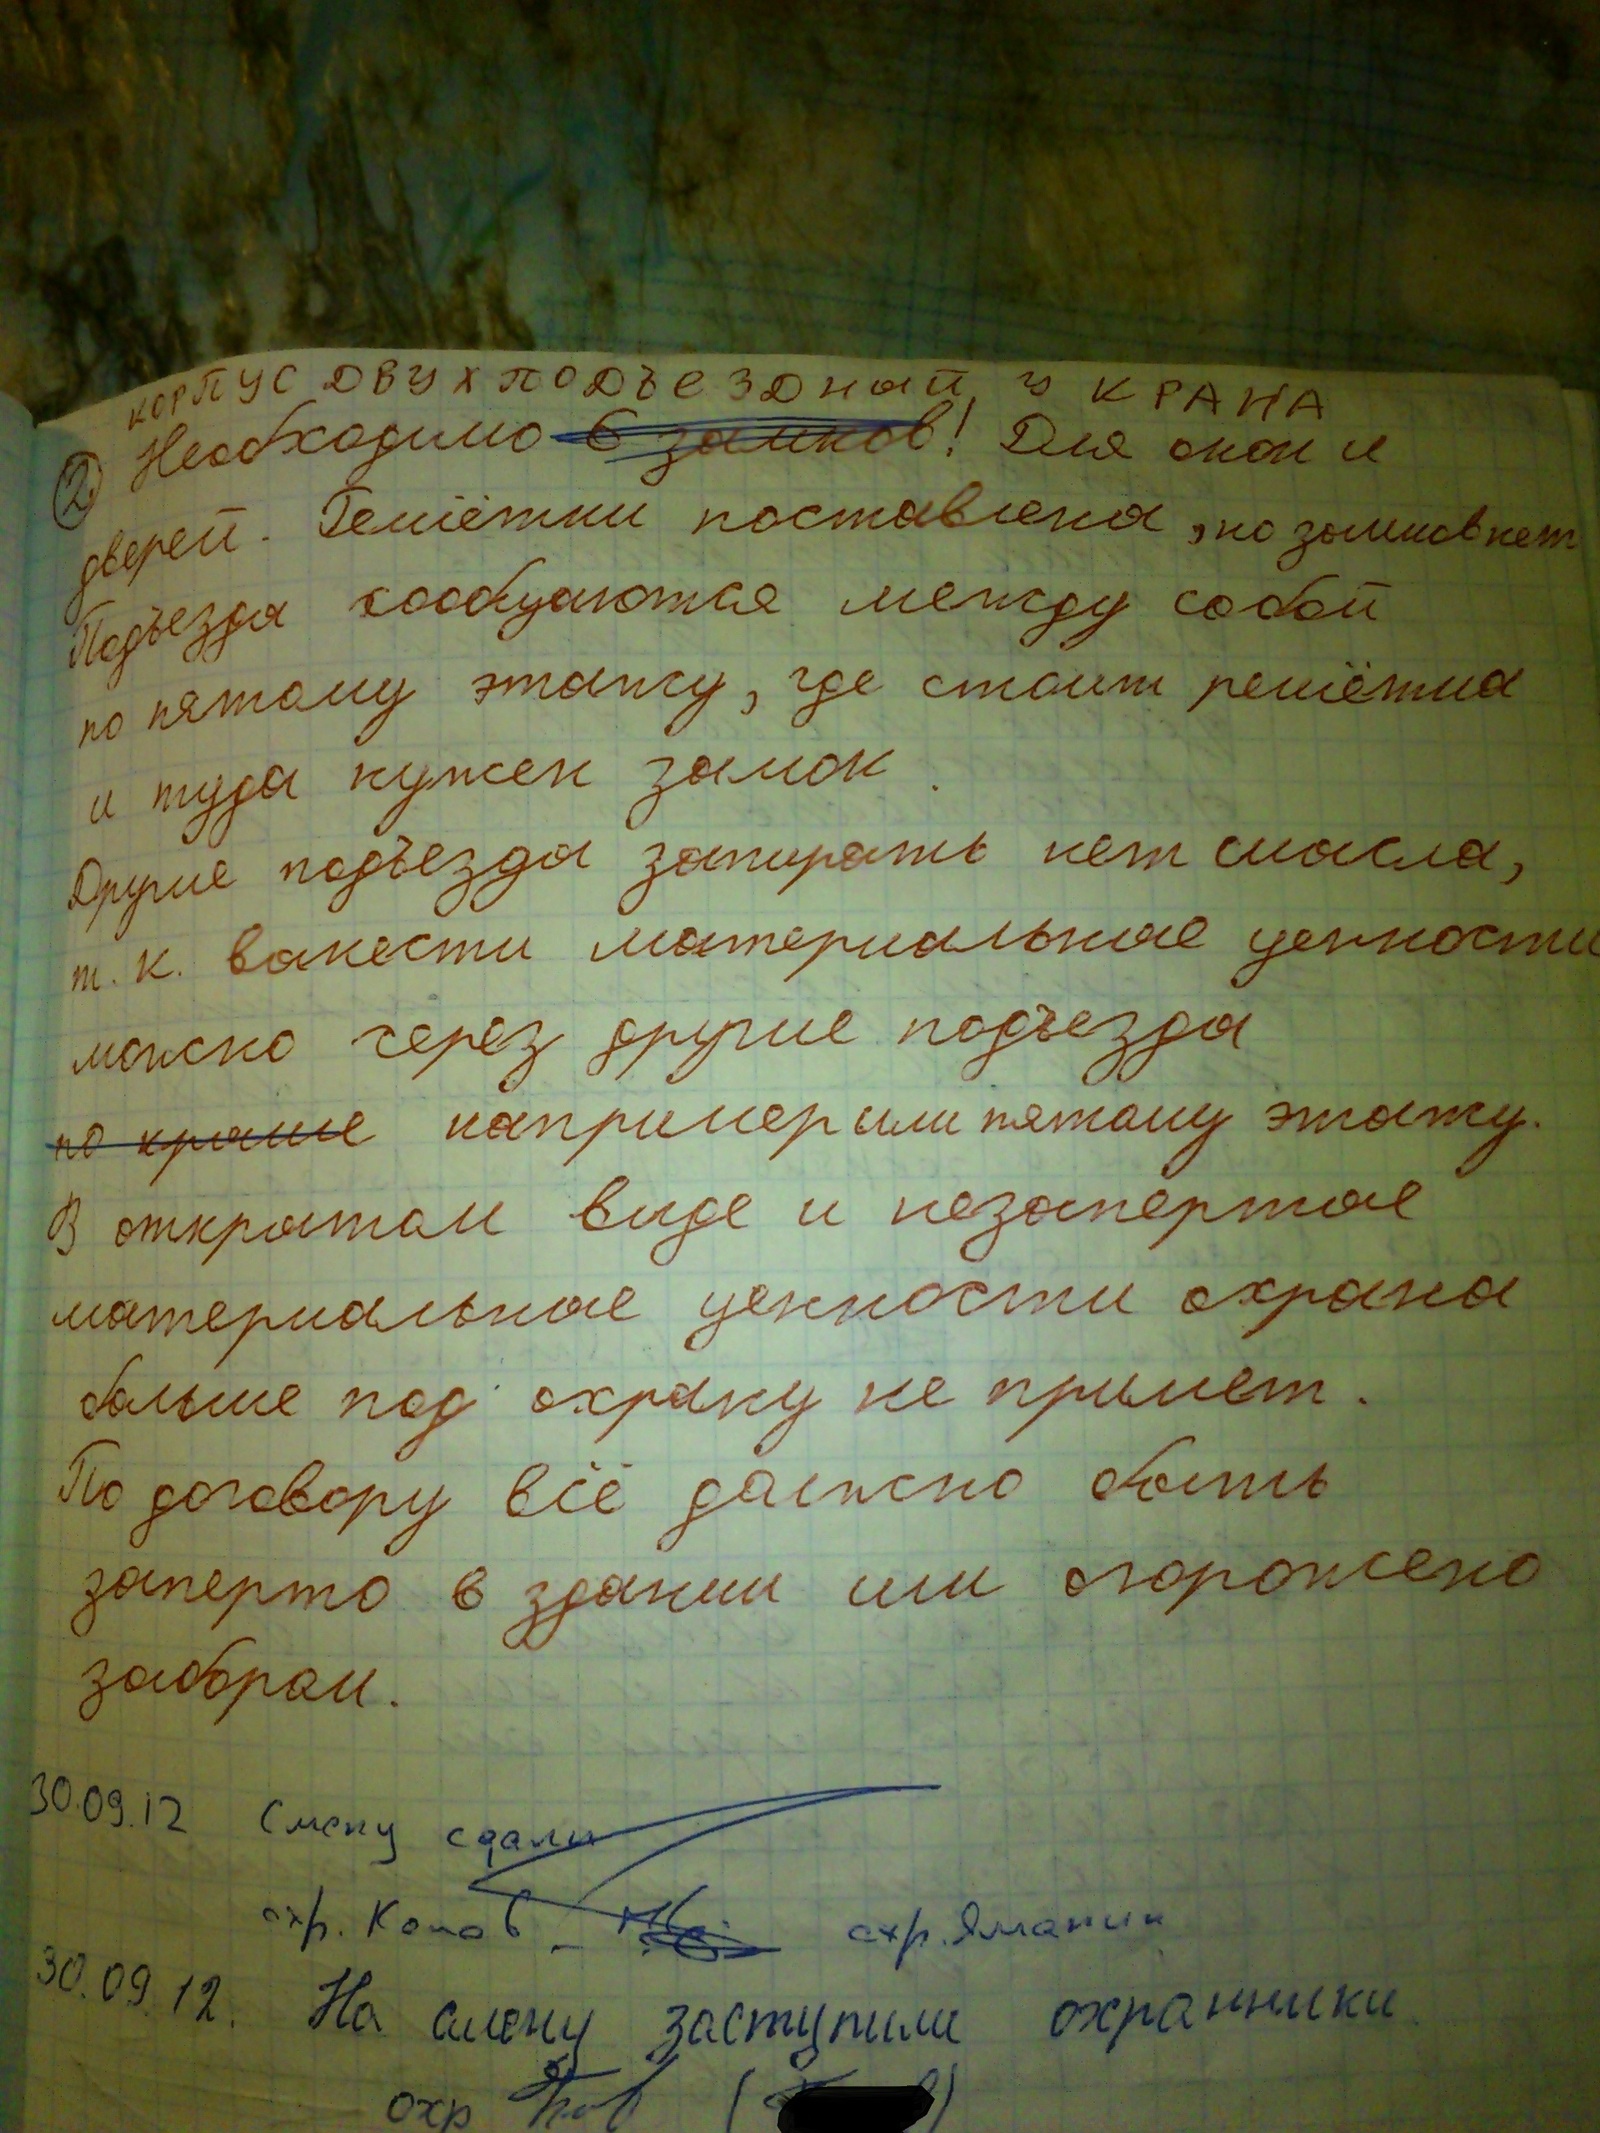 КОРПУС ДВУХПОДЪЕЗДНЫЙ, У КРАНА
② Необходимо 6 замков! Для окон и
дверей. Решётки поставлены, но замков нет
Подъезды сообщаются между собой
по пятому этажу, где стоит решётка
и туда нужен замок.
Другие подъезды запирать нет смысла,
т.к. вынести материальные ценности
можно через другие подъезды
по крыше например или пятому этажу.
В открытом виде и незапертые
материальные ценности охрана
больше под охрану не примет.
По договору всё должно быть
заперто в здании или огорожено
забором.
30.09.12 Смену сдали
охр. Копов охр. Яманин
30.09.12. На смену заступили охранники
охр